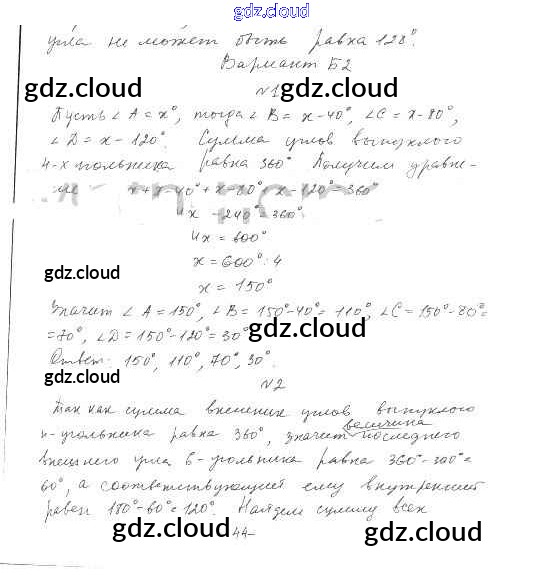 gdz.cloud
угла не может быть равна 128°.
Вариант Б2
gdz.cloud №1 gdz.cloud
Пусть ∠A = x°, тогда ∠B = x-40°, ∠C = x-80°,
∠D = x-120°. Сумма углов выпуклого
4-х угольника равна 360° Получим уравне-
ние x+x-40°+x-80°+x-120°=360°
4x-240°=360°
4x=600°
gdz.cloud x=600°:4
x=150°
Значит ∠A=150°, ∠B=150°-40°=110°, ∠C=150°-80°=
=70°, ∠D=150°-120°=30°
gdz.cloud gdz.cloud
Ответ: 150°, 110°, 70°, 30°.
gdz.cloud №2
Так как сумма внешних углов выпуклого
величина
n-угольника равна 360°, значит последнего
внешнего угла 6-угольника равна 360°-300°=
60°, а соответствующий ему внутренний
gdz.cloud gdz.cloud
равен 180°-60°=120°. Найдем сумму всех
gdz.cloud gdz.cloud
-44-